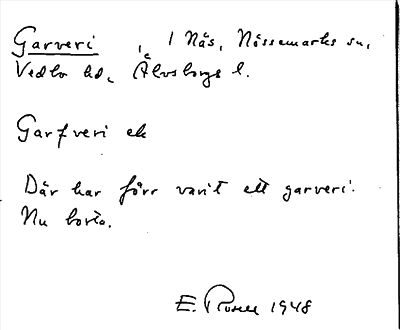 Garveri , 1 Näs, Nössemarks sn,
Vedbo hd, Älvsborgs l.
Garfveri ek
Där har förr varit ett garveri.
Nu borta.
E. Rosell 1948